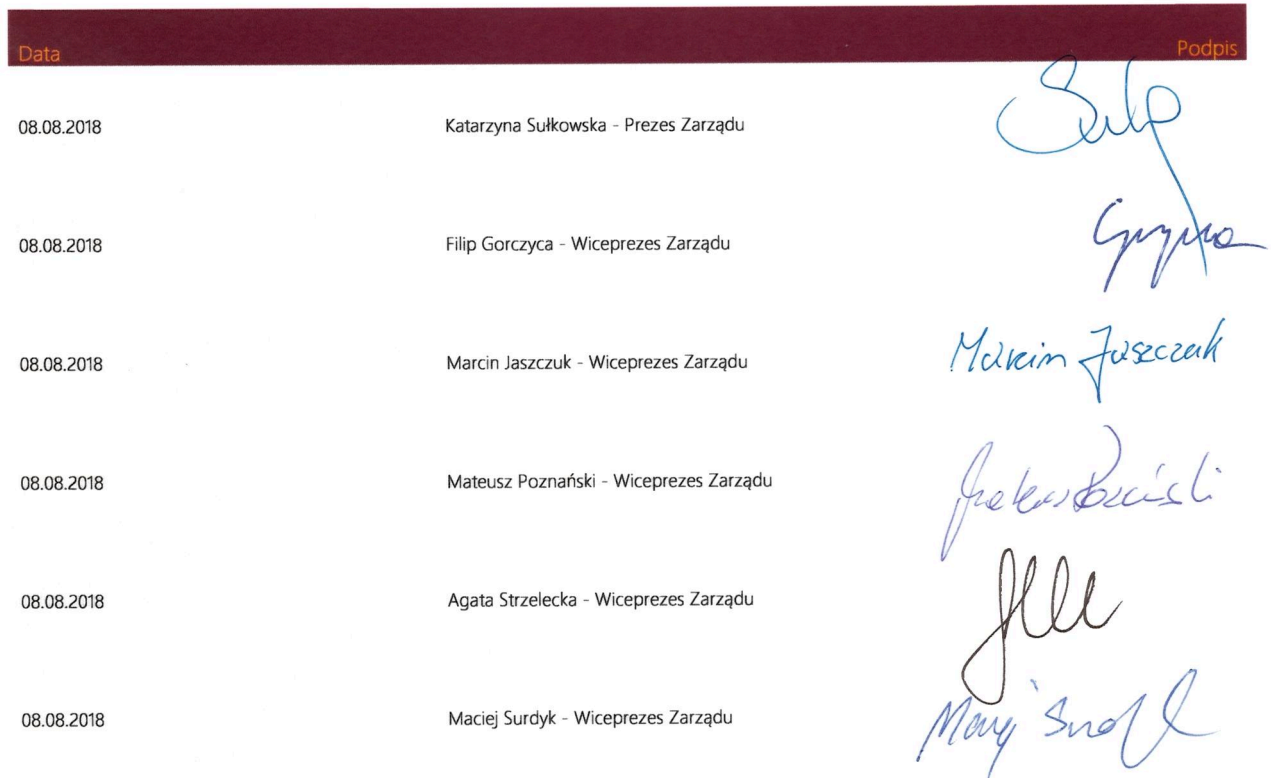 Data Podpis
08.08.2018 Katarzyna Sułkowska - Prezes Zarządu
08.08.2018 Filip Gorczyca - Wiceprezes Zarządu
08.08.2018 Marcin Jaszczuk - Wiceprezes Zarządu Marcin Jaszczuk
08.08.2018 Mateusz Poznański - Wiceprezes Zarządu
08.08.2018 Agata Strzelecka - Wiceprezes Zarządu
08.08.2018 Maciej Surdyk - Wiceprezes Zarządu